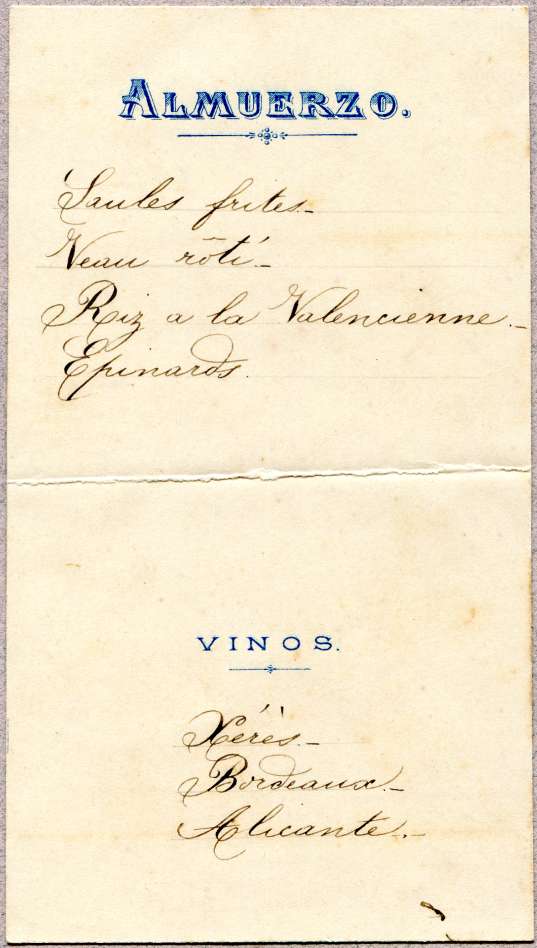 ALMUERZO.
Saules frites_
Veau rôti_
Riz a la Valencienne_
Epinards.
VINOS.
Xérès_
Bordeaux_
Alicante_